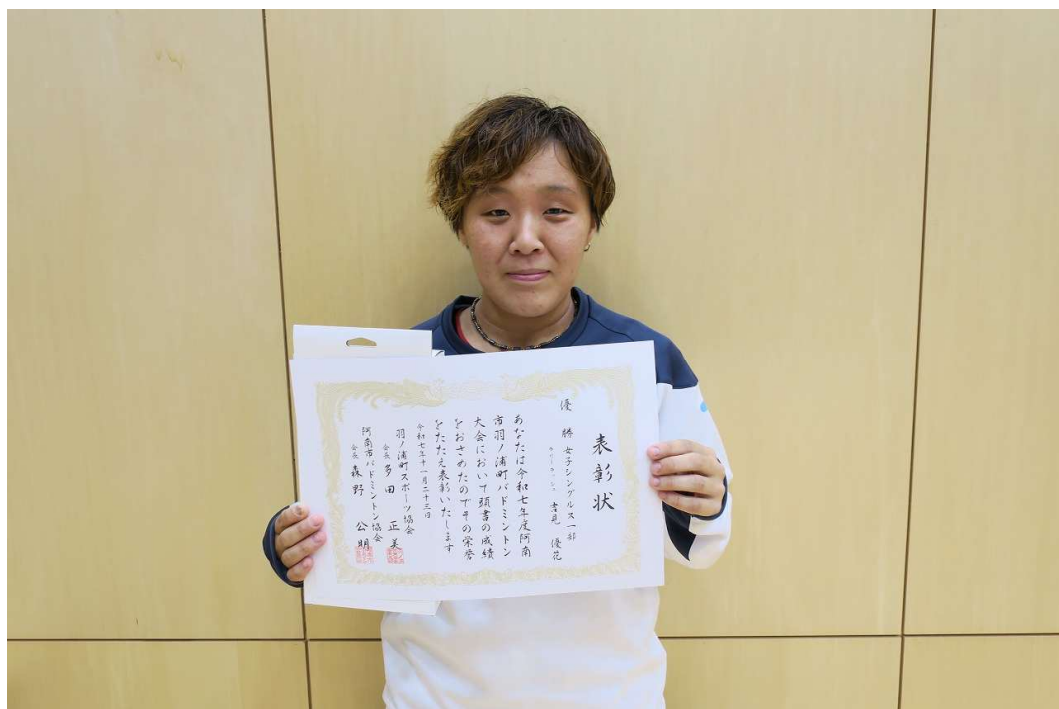 表彰状
優勝 女子シングルス一部
吉見 優花
あなたは令和七年度阿南
市羽ノ浦町バドミントン
大会において頭書の成績
をおさめたのでその栄誉
をたたえ表彰いたします
令和七年十一月二十三日
羽ノ浦町スポーツ協会
会長 多田 正美
阿南市バドミントン協会
会長 森野 公明